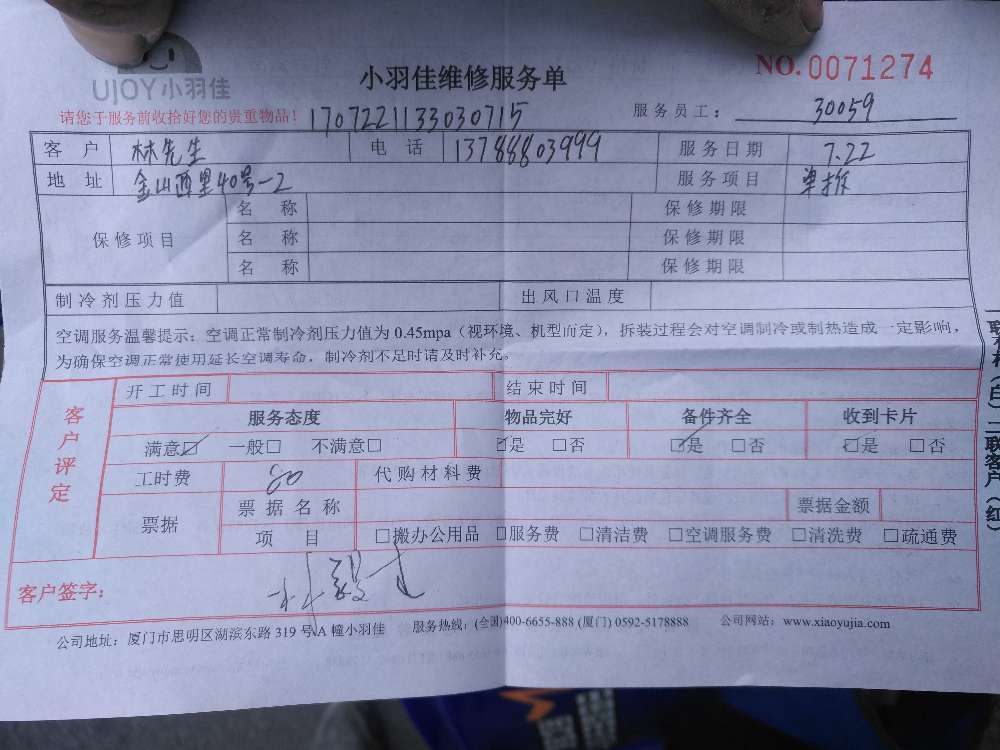 UJOY小羽佳
小羽佳维修服务单
NO.0071274
请您于服务前收拾好您的贵重物品! 1707221133030715 服务员工: 30059
客户 林先生 电话 13788803999 服务日期 7.22
地址 金山西里40号-2 服务项目 单拆
保修项目
名称 保修期限
名称 保修期限
名称 保修期限
制冷剂压力值 出风口温度
空调服务温馨提示: 空调正常制冷剂压力值为 0.45mpa (视环境、机型而定), 拆装过程会对空调制冷或制热造成一定影响,
为确保空调正常使用延长空调寿命, 制冷剂不足时请及时补充。
客户评定
开工时间 结束时间
服务态度 物品完好 备件齐全 收到卡片
满意☑ 一般□ 不满意□ ☑是 □否 ☑是 □否 ☑是 □否
工时费 80 代购材料费
票据 票据名称 票据金额
项目 □搬办公用品 □服务费 □清洁费 □空调服务费 □清洗费 □疏通费
客户签字:
公司地址: 厦门市思明区湖滨东路 319 号A 幢小羽佳 服务热线: (全国)400-6655-888 (厦门) 0592-5178888 公司网站: www.xiaoyujia.com
(白) 二联客户 (红)